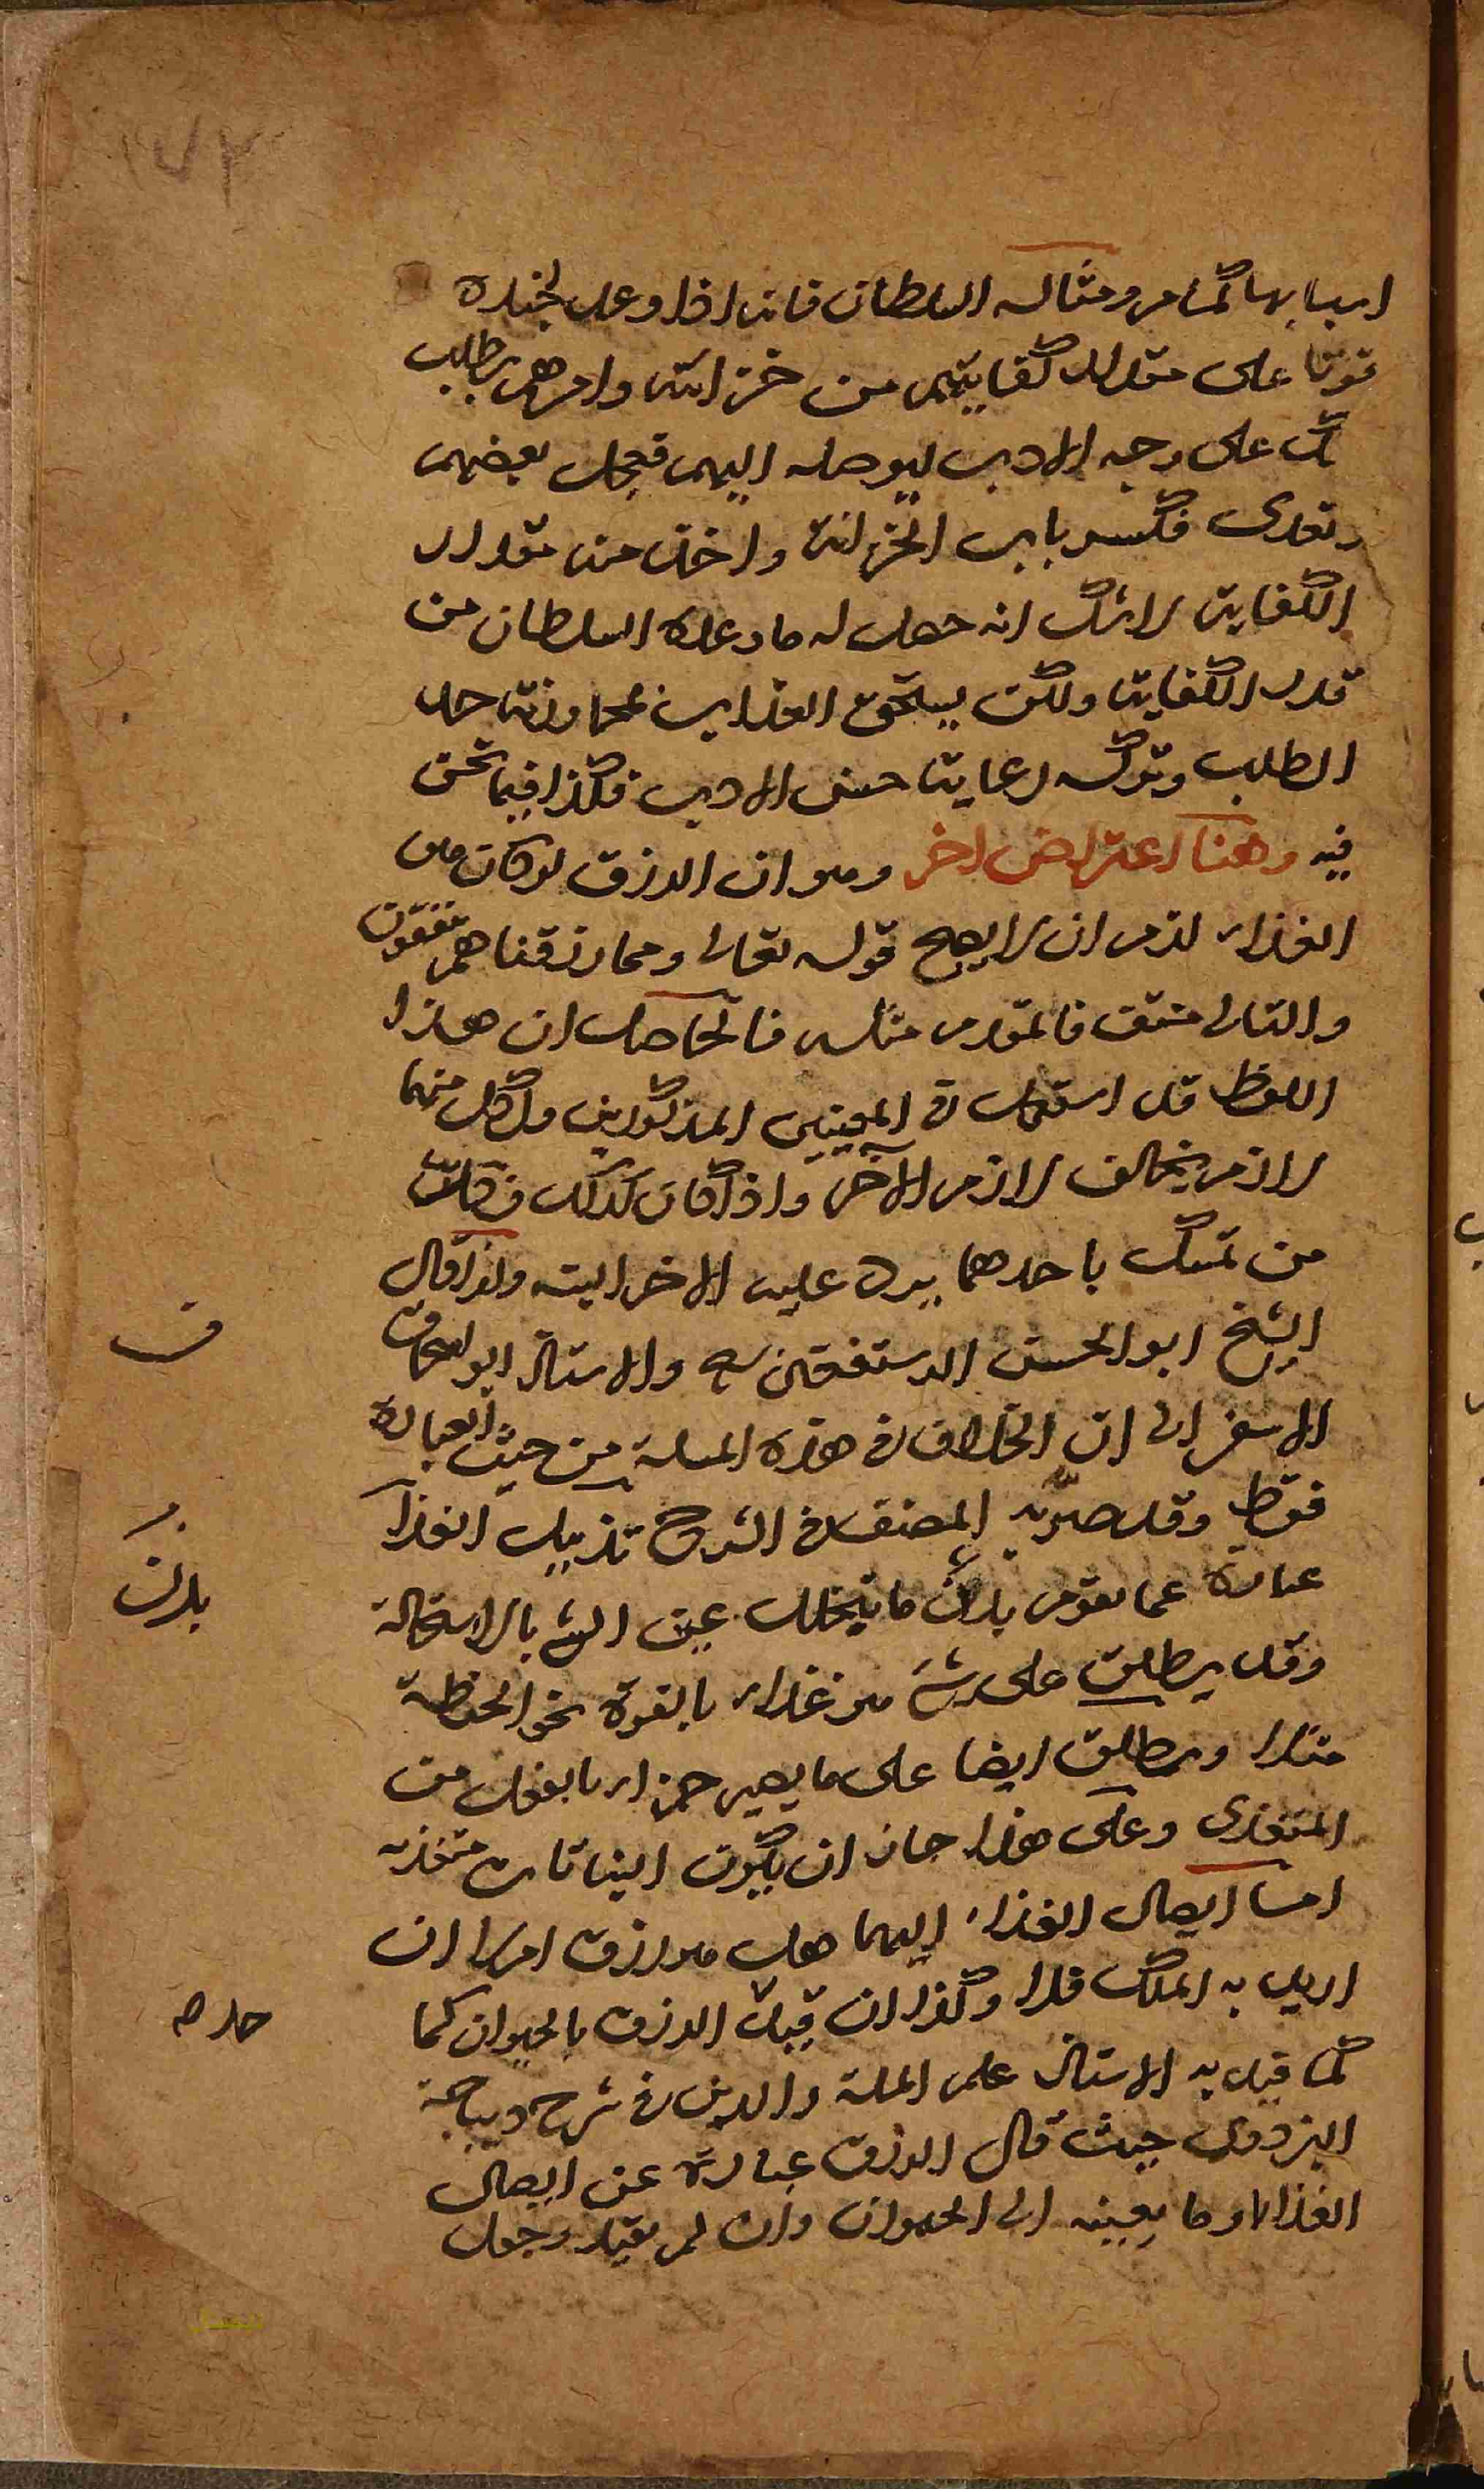 ١٧٢
اسبابها كما مر ومثاله السلطان فانه اذا وعد لجنده
قوتا على مقدار كفايتهم من خزانته وامرهم بطلب
ذلك على وجه الادب ليوصله اليهم فعجل بعضهم
وتعدى فكسر باب الخزانة واخذ منه مقدار
الكفاية لا شك انه حصل له ما وعده السلطان من
قدر الكفاية ولكن يستحق العذاب لمجاوزته حد
الطلب وتركه رعاية حسن الادب فكذا فيما نحن
فيه وهنا اعتراض اخر وهو ان الرزق لو كان هو
الغذاء لزم ان لا يصح قوله تعالى ومما رزقناهم ينفقون
والتالى منتف فالمقدم مثله فالحاصل ان هذا
اللفظ قد استعمل فى المعنيين المذكورين ولكل منهما
لازم يخالف لازم الآخر واذا كان كذلك فكان
من تمسك باحدهما يرد عليه الاخر البتة ولذا قال
الشيخ ابو الحسن الرستغفنى والاستاذ ابو اسحاق
الاسفرانى ان الخلاف فى هذه المسلة من حيث العبارة
فقط وقد صرّح به المصنف فى الشرح تذييل الغذآ
عبارة عما يقوم بدل ما يتحلل عن الشئ بالاستحالة
وقد يطلق على شئ هو غذاء بالقوة نحو الحنطة
مثلا ويطلق ايضا على ما يصير جزاء بالفعل من
المتغذى وعلى هذا جاز ان يكون النباتات متغذية
اما ايصال الغذاء اليها هل هو رزق ام لا ان
اريد به الملك فلا وكذا ان قيد الرزق بالحيوان كما
كما قيد به الاستاذ علم الملة والدين فى شرح ديباجة
البزدوى حيث قال الرزق عبارة عن ايصال
الغذاء او ما يعينه الى الحيوان وان لم يقيد وجعل
ف
بدل